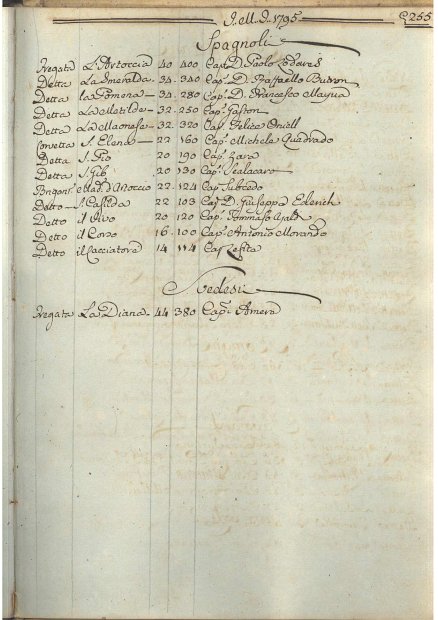 J. M. J. 1795
255
Spagnoli
Fregata L'Astoccia 40 400 Cap. D. Paolo
Detta La Smeralda 34. 340 Cap. D. Raffaello Butron
Detta la Pomona 34. 280 Cap. D. Francesco
Detta La Matilde 32. 250 Cap. Gaston
Detta La 32. 320 Cap. Felice Oniell
Corvetta S. Elena 22 160 Cap. Michele Quadrado
Detta S. Pio 20 190 Cap. Zara
Detta S. 20 130 Cap.
22 124 Cap.
Detto S. Casilda 22 103 Cap. D. Giuseppe
Detto il Vivo 20 120 Cap. Tommaso
Detto il Corso 16. 100 Cap. Antonio Morando
Detto il Cacciatore 14 114 Cap.
Svedesi
Fregata La Diana 44 380 Cap.